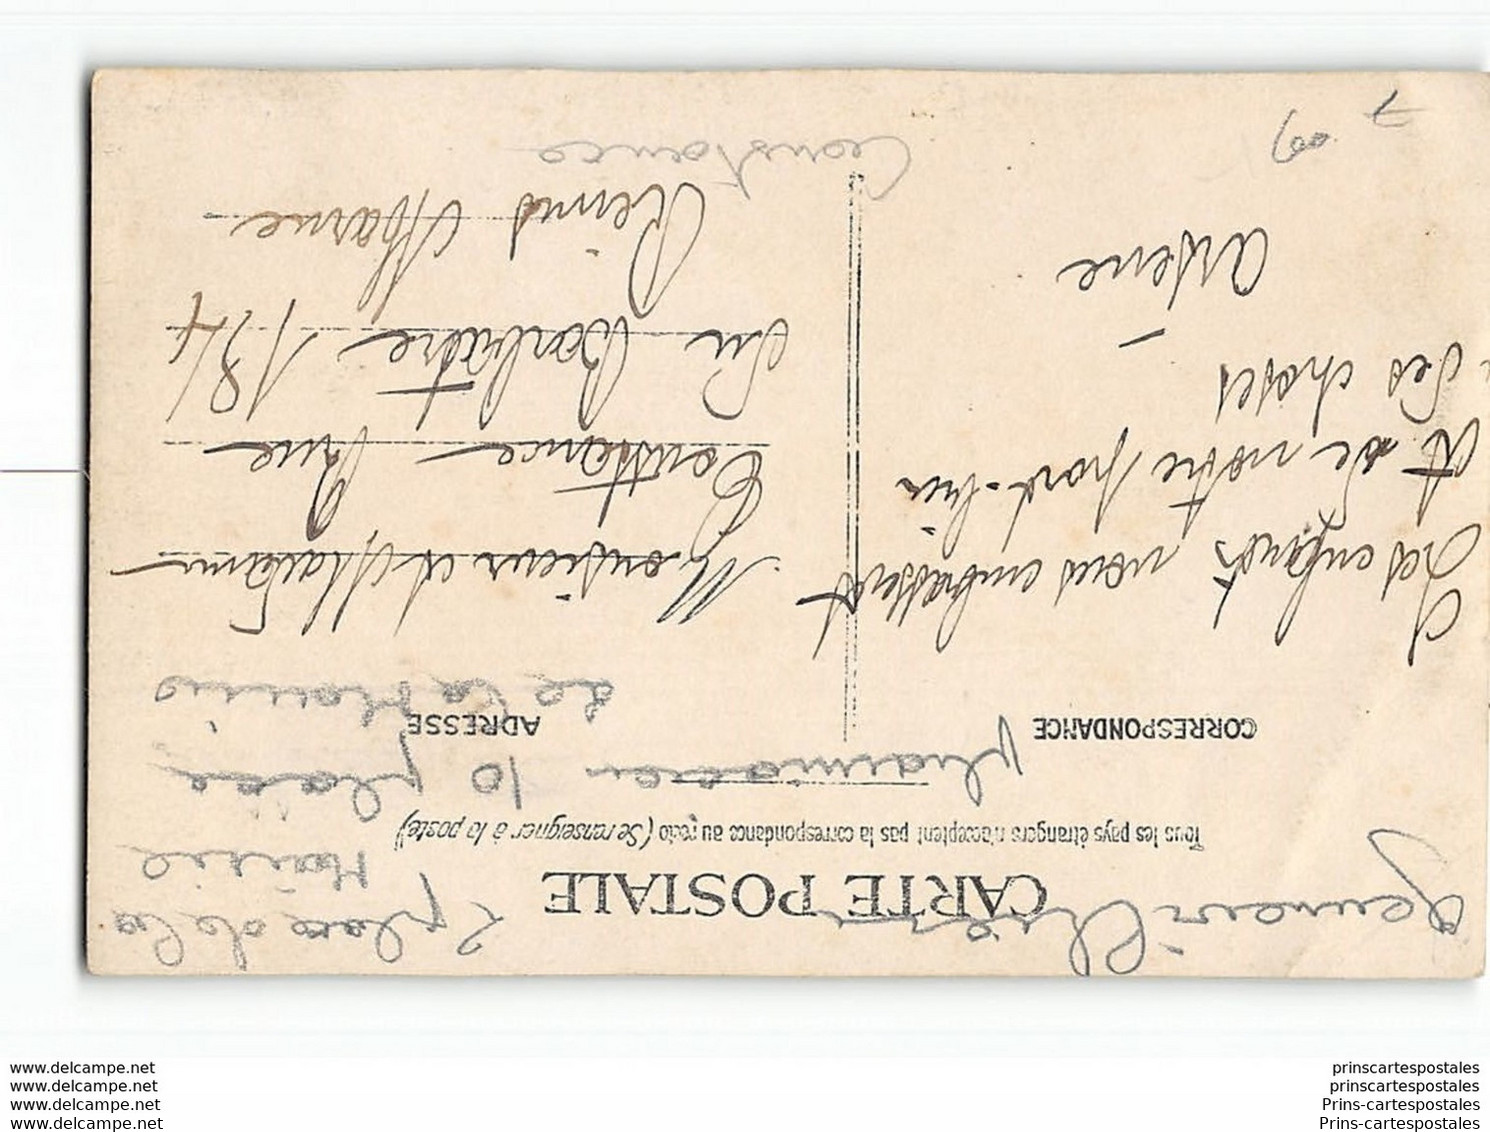 CARTE POSTALE
Tous les pays étrangers n'acceptent pas la correspondance au recto (Se renseigner à la poste)
CORRESPONDANCE
ADRESSE
Les enfants vous embrassent
et de notre part bien
des choses
Arsène
Monsieur et Madame
Constance Rue
du Barbatre 184
Reims Marne
Constance
2 place de la
Mairie
10 place
de la Mairie
www.delcampe.net
www.delcampe.net
www.delcampe.net
www.delcampe.net
prinscartespostales
prinscartespostales
Prins-cartespostales
Prins-cartespostales